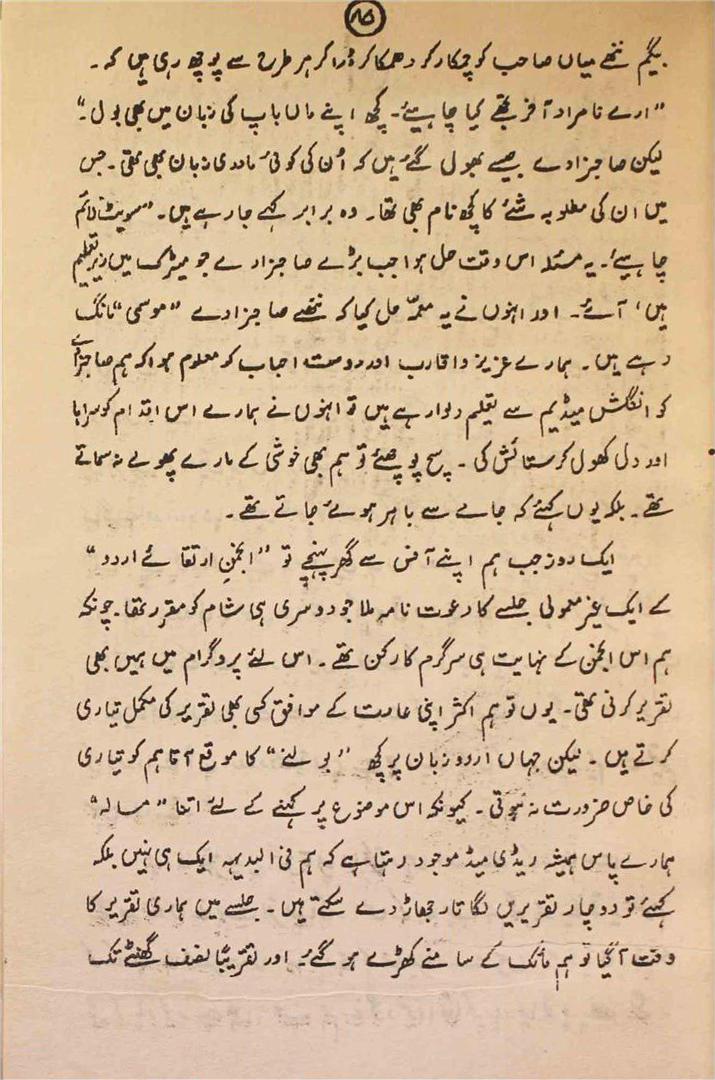 ۸۵
بیگم ننھے میاں صاحب کو چمکار کر دھمکا کر ڈرا کر ہر طرح سے پوچھ رہی ہیں کہ۔
"ارے نامراد آخر تجھے کیا چاہیئے۔ کچھ اپنے ماں باپ کی زبان میں بھی بول۔"
لیکن صاحبزادے جیسے بھول گئے ہیں کہ اُن کی کوئی مادری زبان بھی تھی۔ جس
میں ان کی مطلوبہ شئے کا کچھ نام بھی تھا۔ وہ برابر کہے جا رہے ہیں۔ "سویٹ لائم
چاہیئے۔ یہ مسئلہ اس وقت حل ہوا جب بڑے صاحبزادے جو میٹرک میں زیر تعلیم
ہیں، آئے۔ اور انہوں نے یہ معمّہ حل کیا کہ ننھے صاحبزادے "موسمی" مانگ
رہے ہیں۔ ہمارے عزیز و اقارب اور دوست احباب کو معلوم ہوا کہ ہم صاحبزادے
کو انگلش میڈیم سے تعلیم دلوا رہے ہیں تو انہوں نے ہمارے اس اقدام کو سراہا
اور دل کھول کر ستائش کی۔ سچ پوچھئے تو ہم بھی خوشی کے مارے پھولے نہ سماتے
تھے۔ بلکہ یوں کہئے کہ جامے سے باہر ہوئے جاتے تھے۔
ایک روز جب ہم اپنے آفس سے گھر پہنچے تو "انجمنِ ارتقائے اردو"
کے ایک غیر معمولی جلسے کا دعوت نامہ ملا جو دوسری ہی شام کو مقرر تھا۔ چونکہ
ہم اس انجمن کے نہایت ہی سرگرم کارکن تھے۔ اس لئے پروگرام میں ہمیں بھی
تقریر کرنی تھی۔ یوں تو ہم اکثر اپنی عادت کے موافق کسی بھی تقریر کی مکمل تیاری
کرتے ہیں۔ لیکن جہاں اردو زبان پر کچھ "بولنے" کا موقع آتا ہم کو تیاری
کی خاص ضرورت نہ ہوتی۔ کیونکہ اس موضوع پر کہنے کے لئے اتنا "مسالہ"
ہمارے پاس ہمیشہ ریڈی میڈ موجود رہتا ہے کہ ہم فی البدیہہ ایک ہی نہیں بلکہ
کہئے تو دو چار تقریریں لگاتار جھاڑ دے سکتے ہیں۔ جلسے میں ہماری تقریر کا
وقت آگیا تو ہم مائک کے سامنے کھڑے ہو گئے۔ اور تقریباً نصف گھنٹے تک